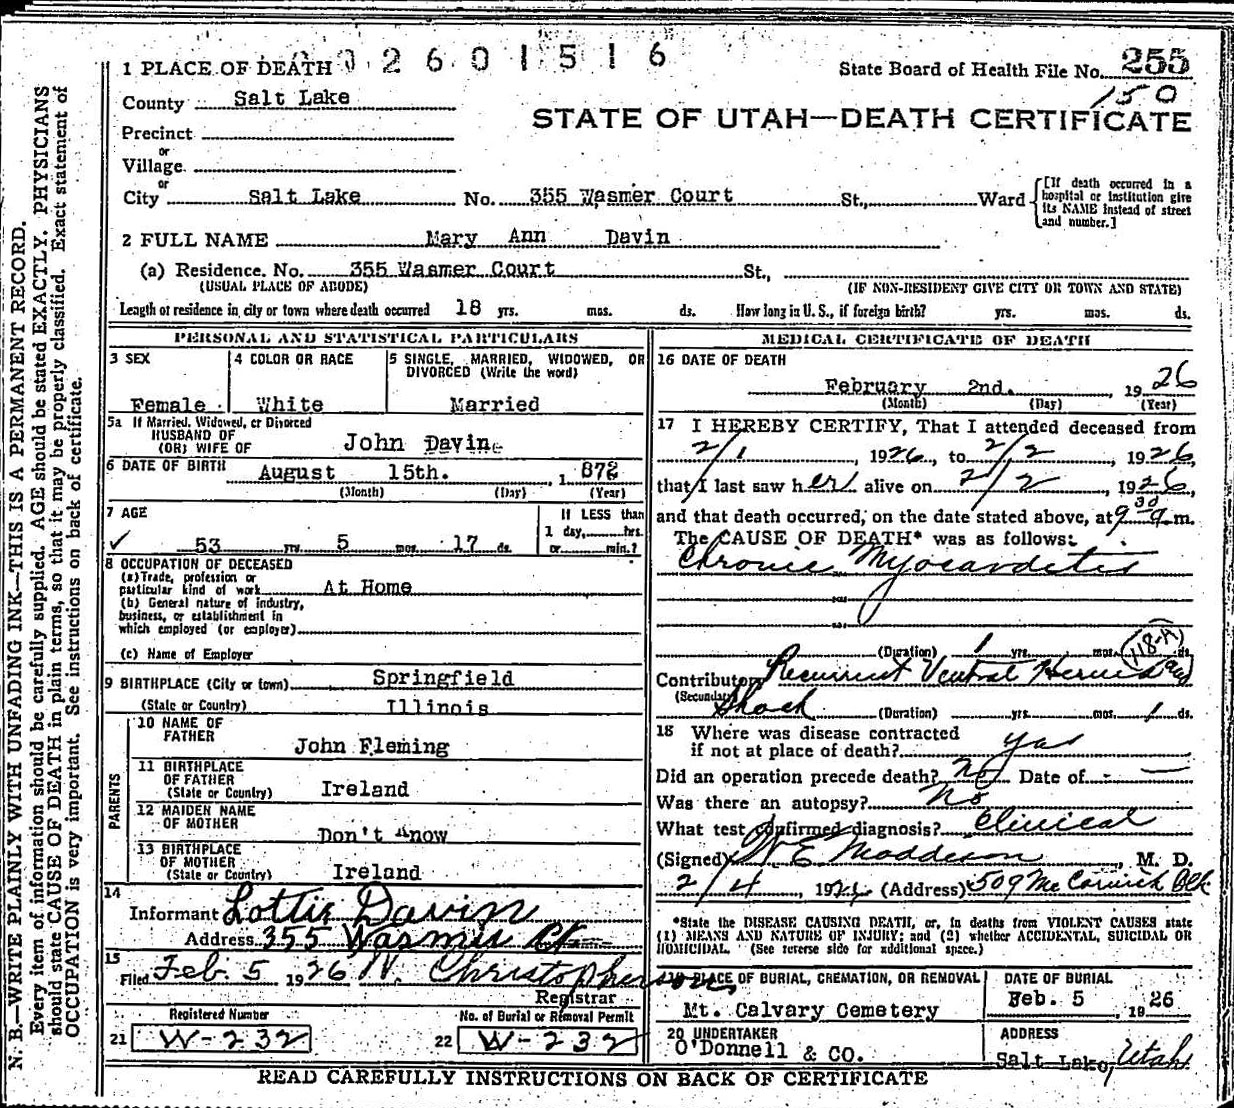 N. B.—WRITE PLAINLY WITH UNFADING INK—THIS IS A PERMANENT RECORD.
Every item of information should be carefully supplied. AGE should be stated EXACTLY. PHYSICIANS
should state CAUSE OF DEATH in plain terms, so that it may be properly classified. Exact statement of
OCCUPATION is very important. See instructions on back of certificate.
02601516
1 PLACE OF DEATH
State Board of Health File No. 255
150
County Salt Lake
STATE OF UTAH—DEATH CERTIFICATE
Precinct
or
Village
or
City Salt Lake No. 355 Wasmer Court St., Ward
[If death occurred in a
hospital or institution give
its NAME instead of street
and number.]
2 FULL NAME Mary Ann Davin
(a) Residence. No. 355 Wasmer Court St.,
(USUAL PLACE OF ABODE) (IF NON-RESIDENT GIVE CITY OR TOWN AND STATE)
Length of residence in city or town where death occurred 18 yrs. mos. ds. How long in U. S., if foreign birth? yrs. mos. ds.
PERSONAL AND STATISTICAL PARTICULARS
3 SEX
Female
4 COLOR OR RACE
White
5 SINGLE, MARRIED, WIDOWED, OR
DIVORCED (Write the word)
Married
5a If Married, Widowed, or Divorced
HUSBAND OF
(OR) WIFE OF John Davin
6 DATE OF BIRTH August 15th. , 1 872
(Month) (Day) (Year)
7 AGE
✓ 53 yrs. 5 mos. 17 ds.
If LESS than
1 day, hrs.
or min.?
8 OCCUPATION OF DECEASED
(a) Trade, profession or
particular kind of work At Home
(b) General nature of industry,
business, or establishment in
which employed (or employer)
(c) Name of Employer
9 BIRTHPLACE (City or town) Springfield
(State or Country) Illinois
PARENTS
10 NAME OF
FATHER John Fleming
11 BIRTHPLACE
OF FATHER
(State or Country) Ireland
12 MAIDEN NAME
OF MOTHER Don't Know
13 BIRTHPLACE
OF MOTHER
(State or Country) Ireland
14
Informant Lottie Davin
Address 355 Wasmer Ct
15
Filed Feb. 5 1926 N. Christopherson
Registrar
Registered Number
21 W-232
No. of Burial or Removal Permit
22 W-232
MEDICAL CERTIFICATE OF DEATH
16 DATE OF DEATH
February 2nd. , 1926
(Month) (Day) (Year)
17 I HEREBY CERTIFY, That I attended deceased from
2/1 , 1926, to 2/2 , 1926,
that I last saw her alive on 2/2 , 1926,
and that death occurred, on the date stated above, at 9 30 a m.
The CAUSE OF DEATH* was as follows:
Chronic Myocarditis
(Duration) 1 yrs. mos. ds.
118-A
Contributory Recurrent Ventral Hernia and
(Secondary) Shock (Duration) yrs. mos. 1 ds.
18 Where was disease contracted
if not at place of death? yes
Did an operation precede death? no Date of -
Was there an autopsy? No
What test confirmed diagnosis? Clinical
(Signed) W E Moddeson , M. D.
2/4 , 1926 (Address) 509 McCornick Blk
*State the DISEASE CAUSING DEATH, or, in deaths from VIOLENT CAUSES state
(1) MEANS AND NATURE OF INJURY; and (2) whether ACCIDENTAL, SUICIDAL OR
HOMICIDAL. (See reverse side for additional space.)
19 PLACE OF BURIAL, CREMATION, OR REMOVAL
Mt. Calvary Cemetery
DATE OF BURIAL
Feb. 5 1926
20 UNDERTAKER
O'Donnell & CO.
ADDRESS
Salt Lake, Utah
READ CAREFULLY INSTRUCTIONS ON BACK OF CERTIFICATE